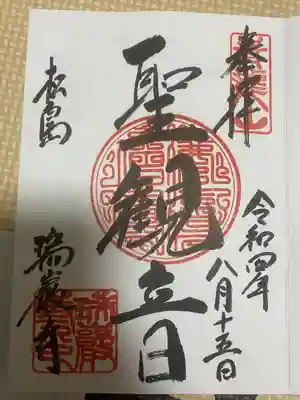 奉拝
令和四年
八月十五日
聖観音
松島
瑞巖寺